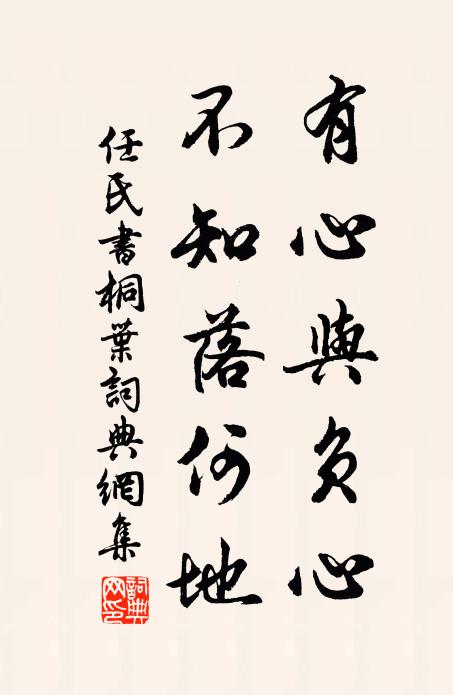 有心與負心
不知落何地
任氏書桐葉詞典網集
詞典
网印